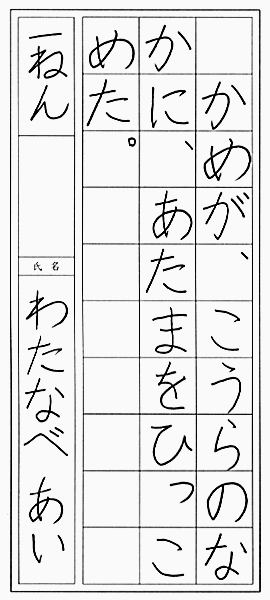 かめが、こうらのな
かに、あたまをひっこ
めた。
一ねん
氏名
わたなべ あい